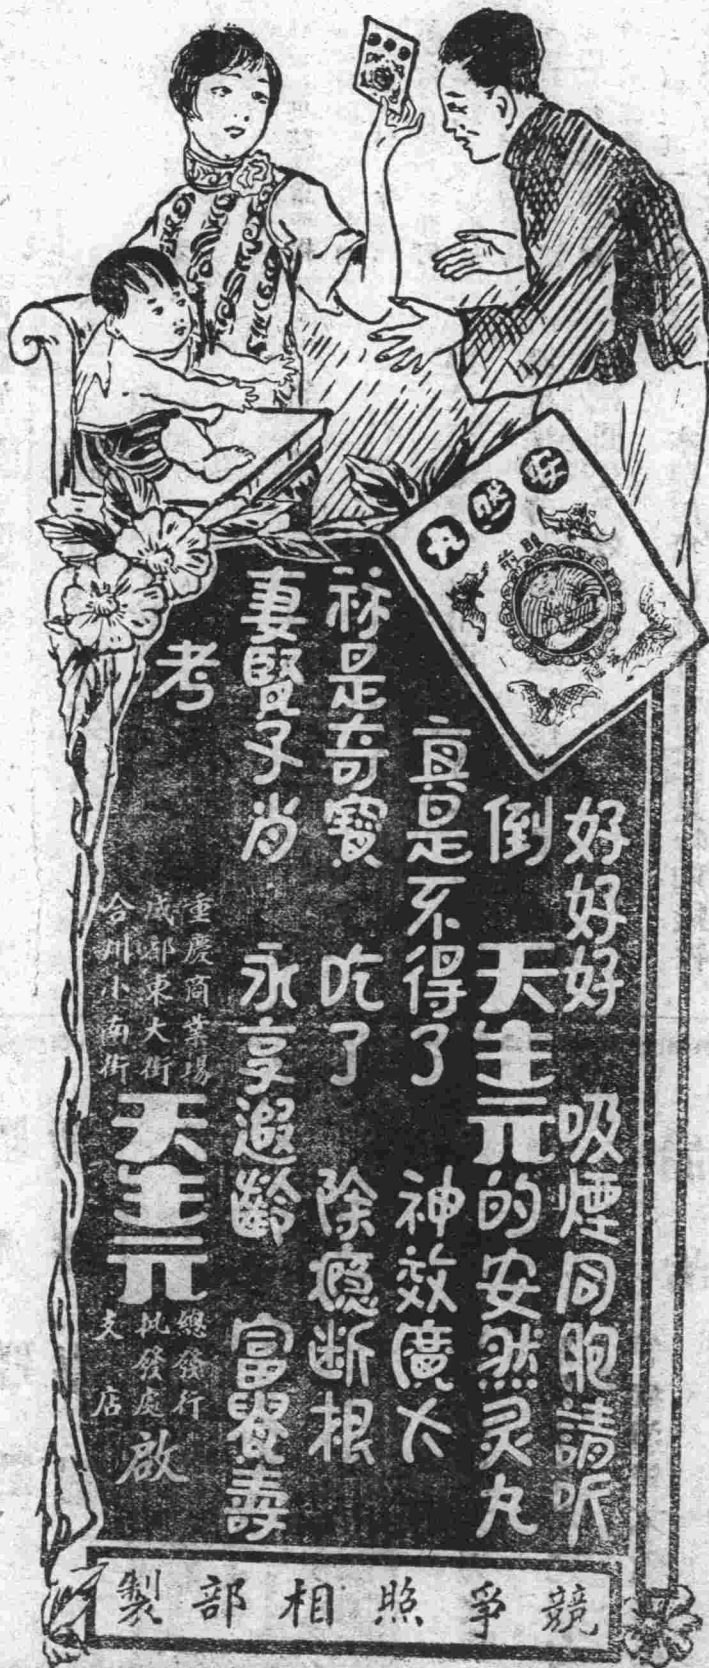 安然丸
好好好 吸煙同胞請听
倒 天生元的安然灵丸
真是不得了 神效廣大
祢是奇寶 吃了 除瘾断根
妻賢子肖 永享遐齡 富貴壽
考
重慶商業場 總發行
成都東大街 批發處
合川小南街 支店
天生元 啟
競爭照相部製